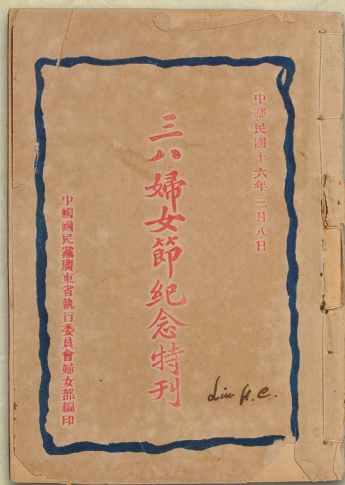 中華民國十六年三月八日
三八婦女節紀念特刊
中國國民黨廣東省執行委員會婦女部編印
Liu H.C.